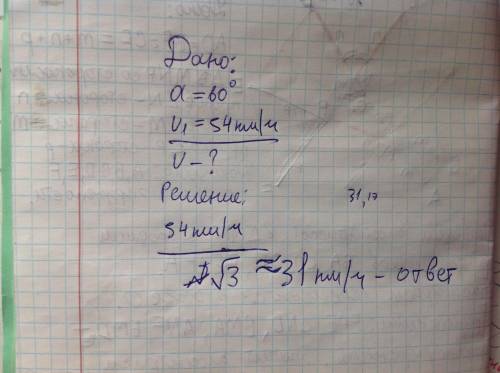 Дано:
α = 60°
v₁ = 54 км/ч
v - ?
Решение:
31,17
54 км/ч
√3 ≈ 31 км/ч - ответ